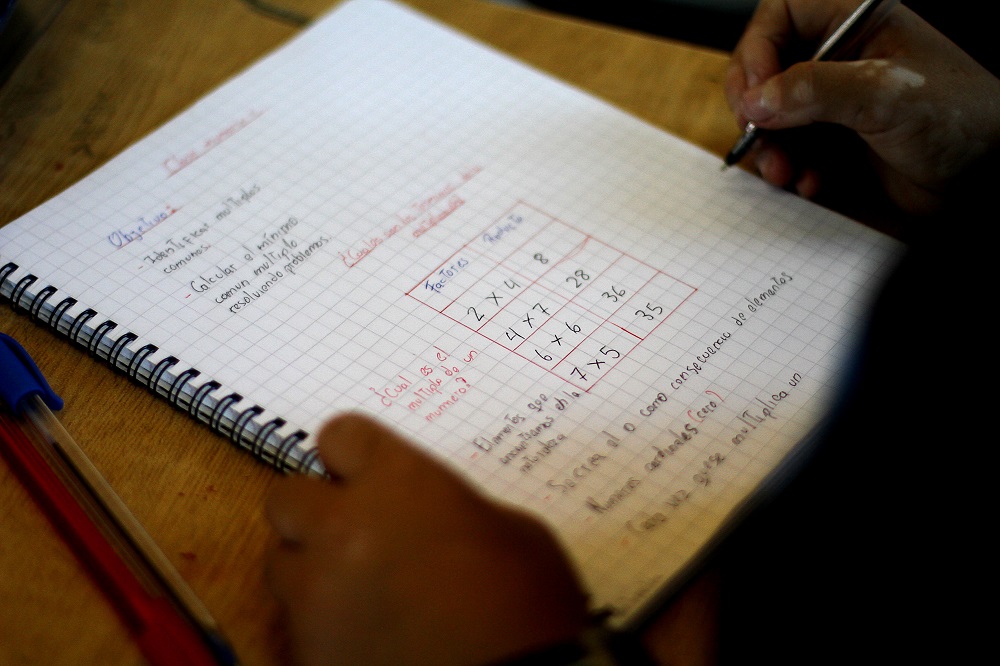 Clase
Objetivo:
- Identificar multiplos
comunes.
- Calcular el mínimo
comun multiplo
resolviendo problemas.
¿Cuales son
Factores Producto
2 x 4 8
4 x 7 28
6 x 6 36
7 x 5 35
¿Cual es el
multiplo de un
numero?
- Elementos que
encontramos en la
- el 0 como consecuencia de elementos
Numeros cardinales (cero)
- Cada vez que se multiplica un